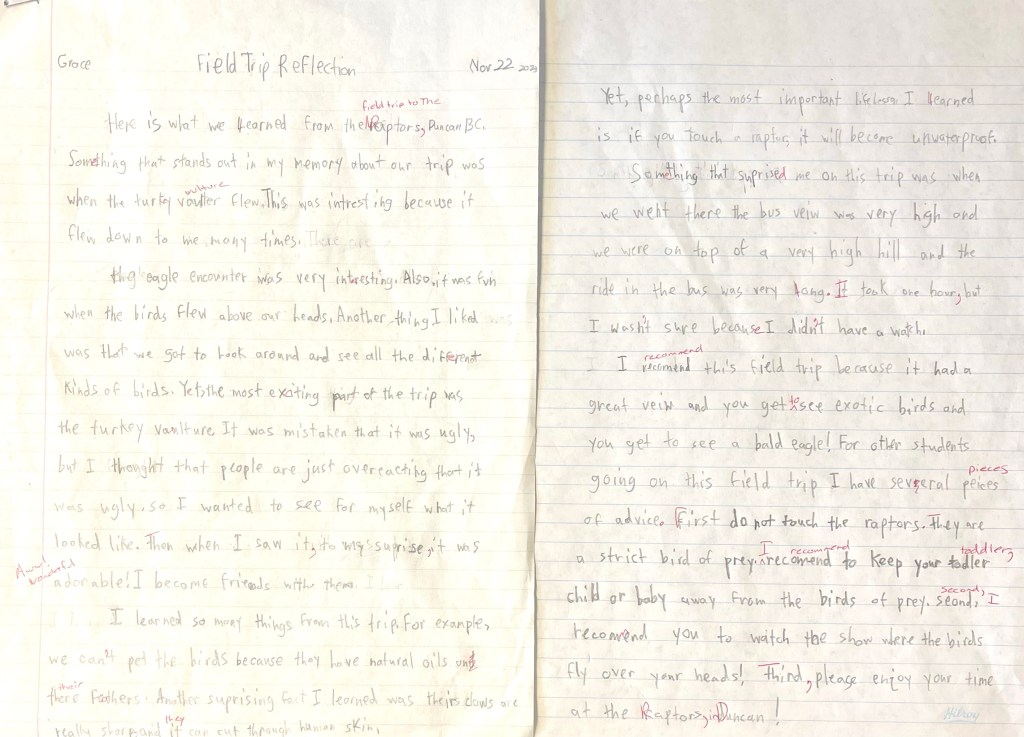 Grace
Field Trip Reflection
Nov 22 2023
field trip to The
Here is what we learned from the Raptors, Duncan BC.
Something that stands out in my memory about our trip was
vulture
when the turkey vaulter flew. This was intresting because it
flew down to me many times. There are
the eagle encounter was very intresting. Also, it was fun
when the birds flew above our heads. Another thing I liked was
was that we got to look around and see all the different
kinds of birds. Yet, the most exciting part of the trip was
the turkey vaulture. It was mistaken that it was ugly,
but I thought that people are just overreacting that it
was ugly, so I wanted to see for myself what it
looked like. Then when I saw it, to my suprise, it was
Aww!
wonderful
adorable! I become friends with them.
I learned so many things from this trip. For example,
we can't pet the birds because they have natural oils
their
there feathers. Another suprising fact I learned was theirs claws are
they
really sharp and it can cut through human skin,
Yet, perhaps the most important life lesson I learned
is if you touch a raptor, it will become unwaterproof.
Something that suprised me on this trip was when
we weht there the bus veiw was very high and
we were on top of a very high hill and the
ride in the bus was very long. It took one hour, but
I wasn't sure because I didn't have a watch.
recommend
I recomend this field trip because it had a
to
great veiw and you get see exotic birds and
you get to see a bald eagle! For other students
pieces
going on this field trip I have several peices
of advice. First do not touch the raptors. They are
I recommend toddler,
a strict bird of prey. recomend to keep your todler
second,
child or baby away from the birds of prey. seond, I
recomend you to watch the show where the birds
fly over your heads! Third, please enjoy your time
at the Raptors, in Duncan!
Hilroy